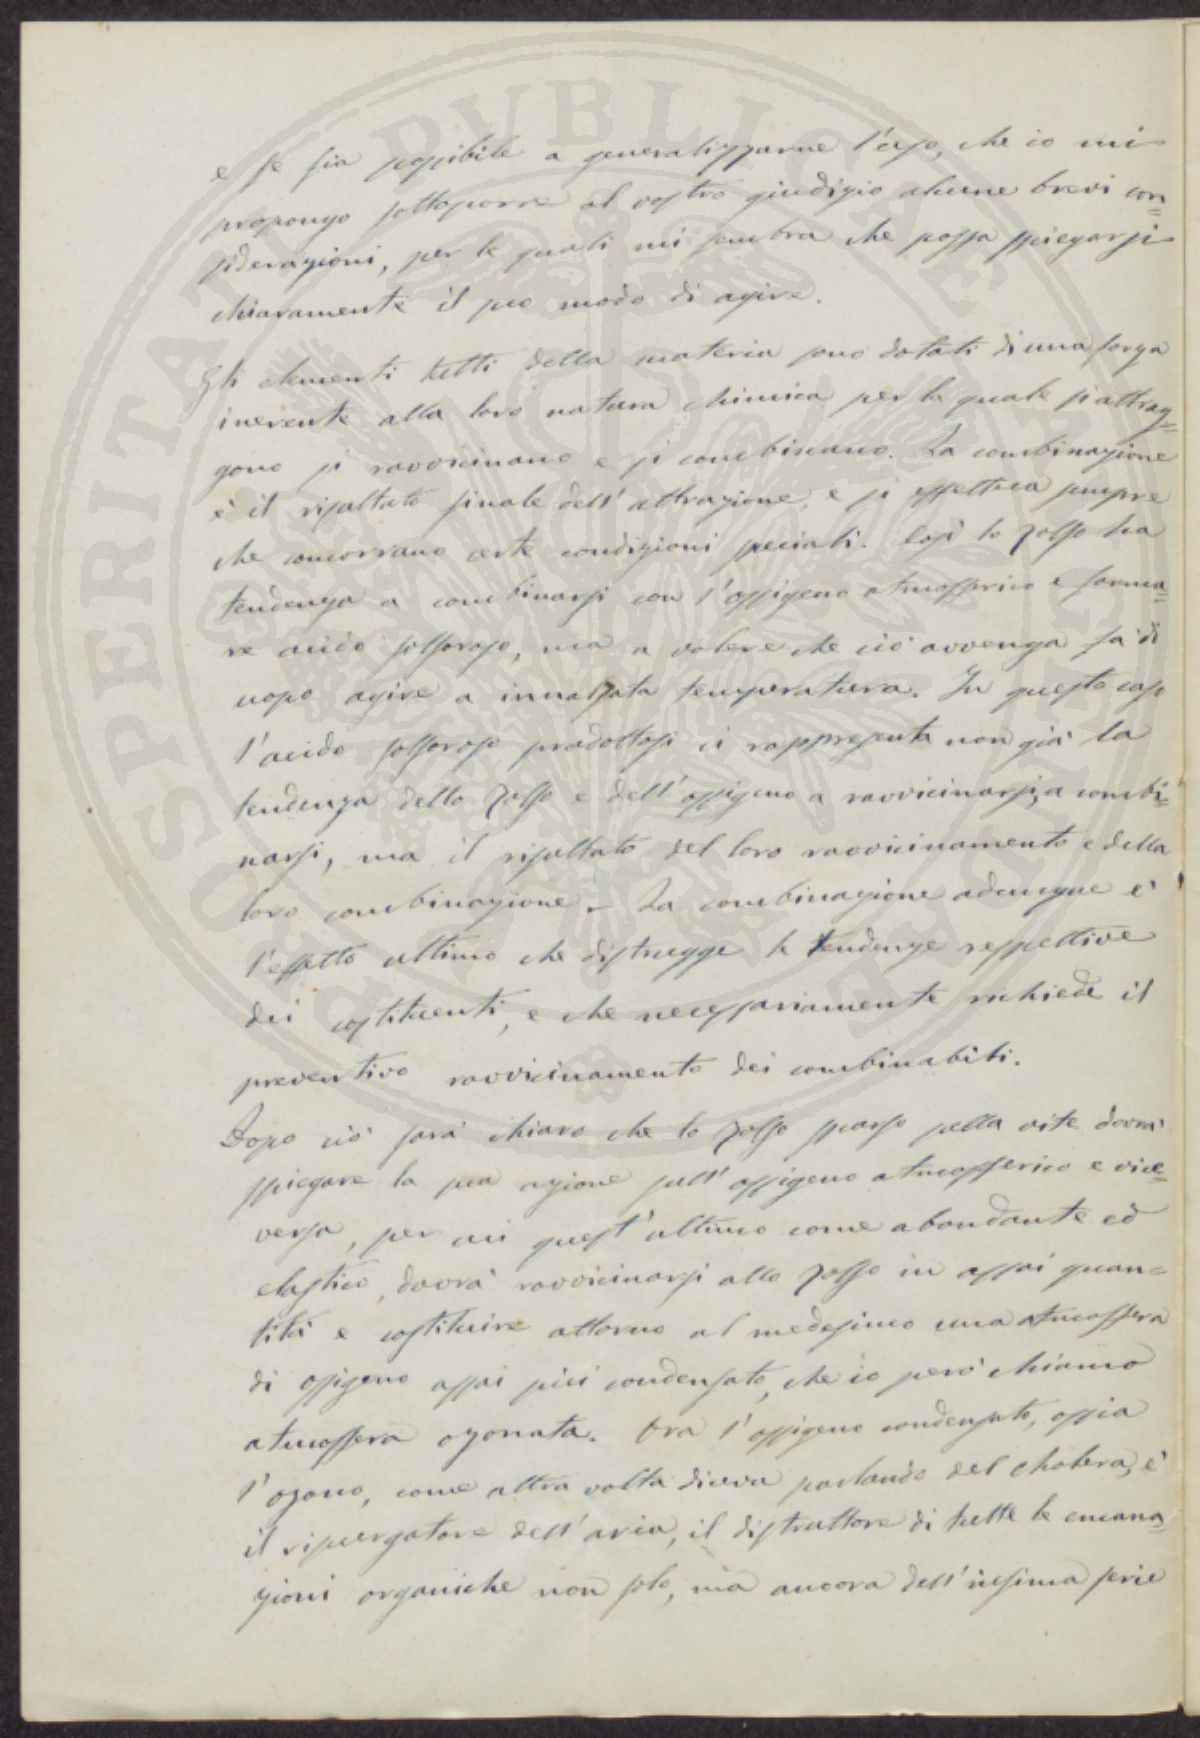 e se sia possibile a generalizzarne l'uso, che io mi
propongo sottoporre al vostro giudizio alcune brevi con=
siderazioni, per le quali mi sembra che possa spiegarsi
chiaramente il suo modo di agire.
Gli elementi tutti della materia sono dotati di una forza
inerente alla loro natura chimica per la quale si attrag=
gono si ravvicinano e si combinano. La combinazione
è il risultato finale dell'attrazione, e si effettua sempre
che concorrano certe condizioni speciali. Così lo zolfo ha
tendenza a combinarsi con l'ossigeno atmosferico e forma=
re acido solforoso, ma a volere che ciò avvenga fa di
uopo agire a innalzata temperatura. In questo caso
l'acido solforoso prodottosi ci rappresenta non già la
tendenza dello zolfo e dell'ossigeno a ravvicinarsi, a combi=
narsi, ma il risultato del loro ravvicinamento e della
loro combinazione. La combinazione adunque è
l'effetto ultimo che distrugge le tendenze respettive
dei costituenti, e che necessariamente richiede il
preventivo ravvicinamento dei combinabili.
Dopo ciò sarà chiaro che lo zolfo sparso sulla vite dovrà
spiegare la sua azione sull'ossigeno atmosferico e vice=
versa, per cui quest'ultimo come abondante ed
elastico, dovrà ravvicinarsi allo zolfo in assai quan=
tità e costituire attorno al medesimo una atmosfera
di ossigeno assai più condensato, che io però chiamo
atmosfera ozonata. Ora l'ossigeno condensato, ossia
l'ozono, come altra volta diceva parlando del cholera, è
il ripurgatore dell'aria, il distruttore di tutte le emana=
zioni organiche non solo, ma ancora dell'infima serie
PROSPERITATI PUBLICAE AUGENDAE